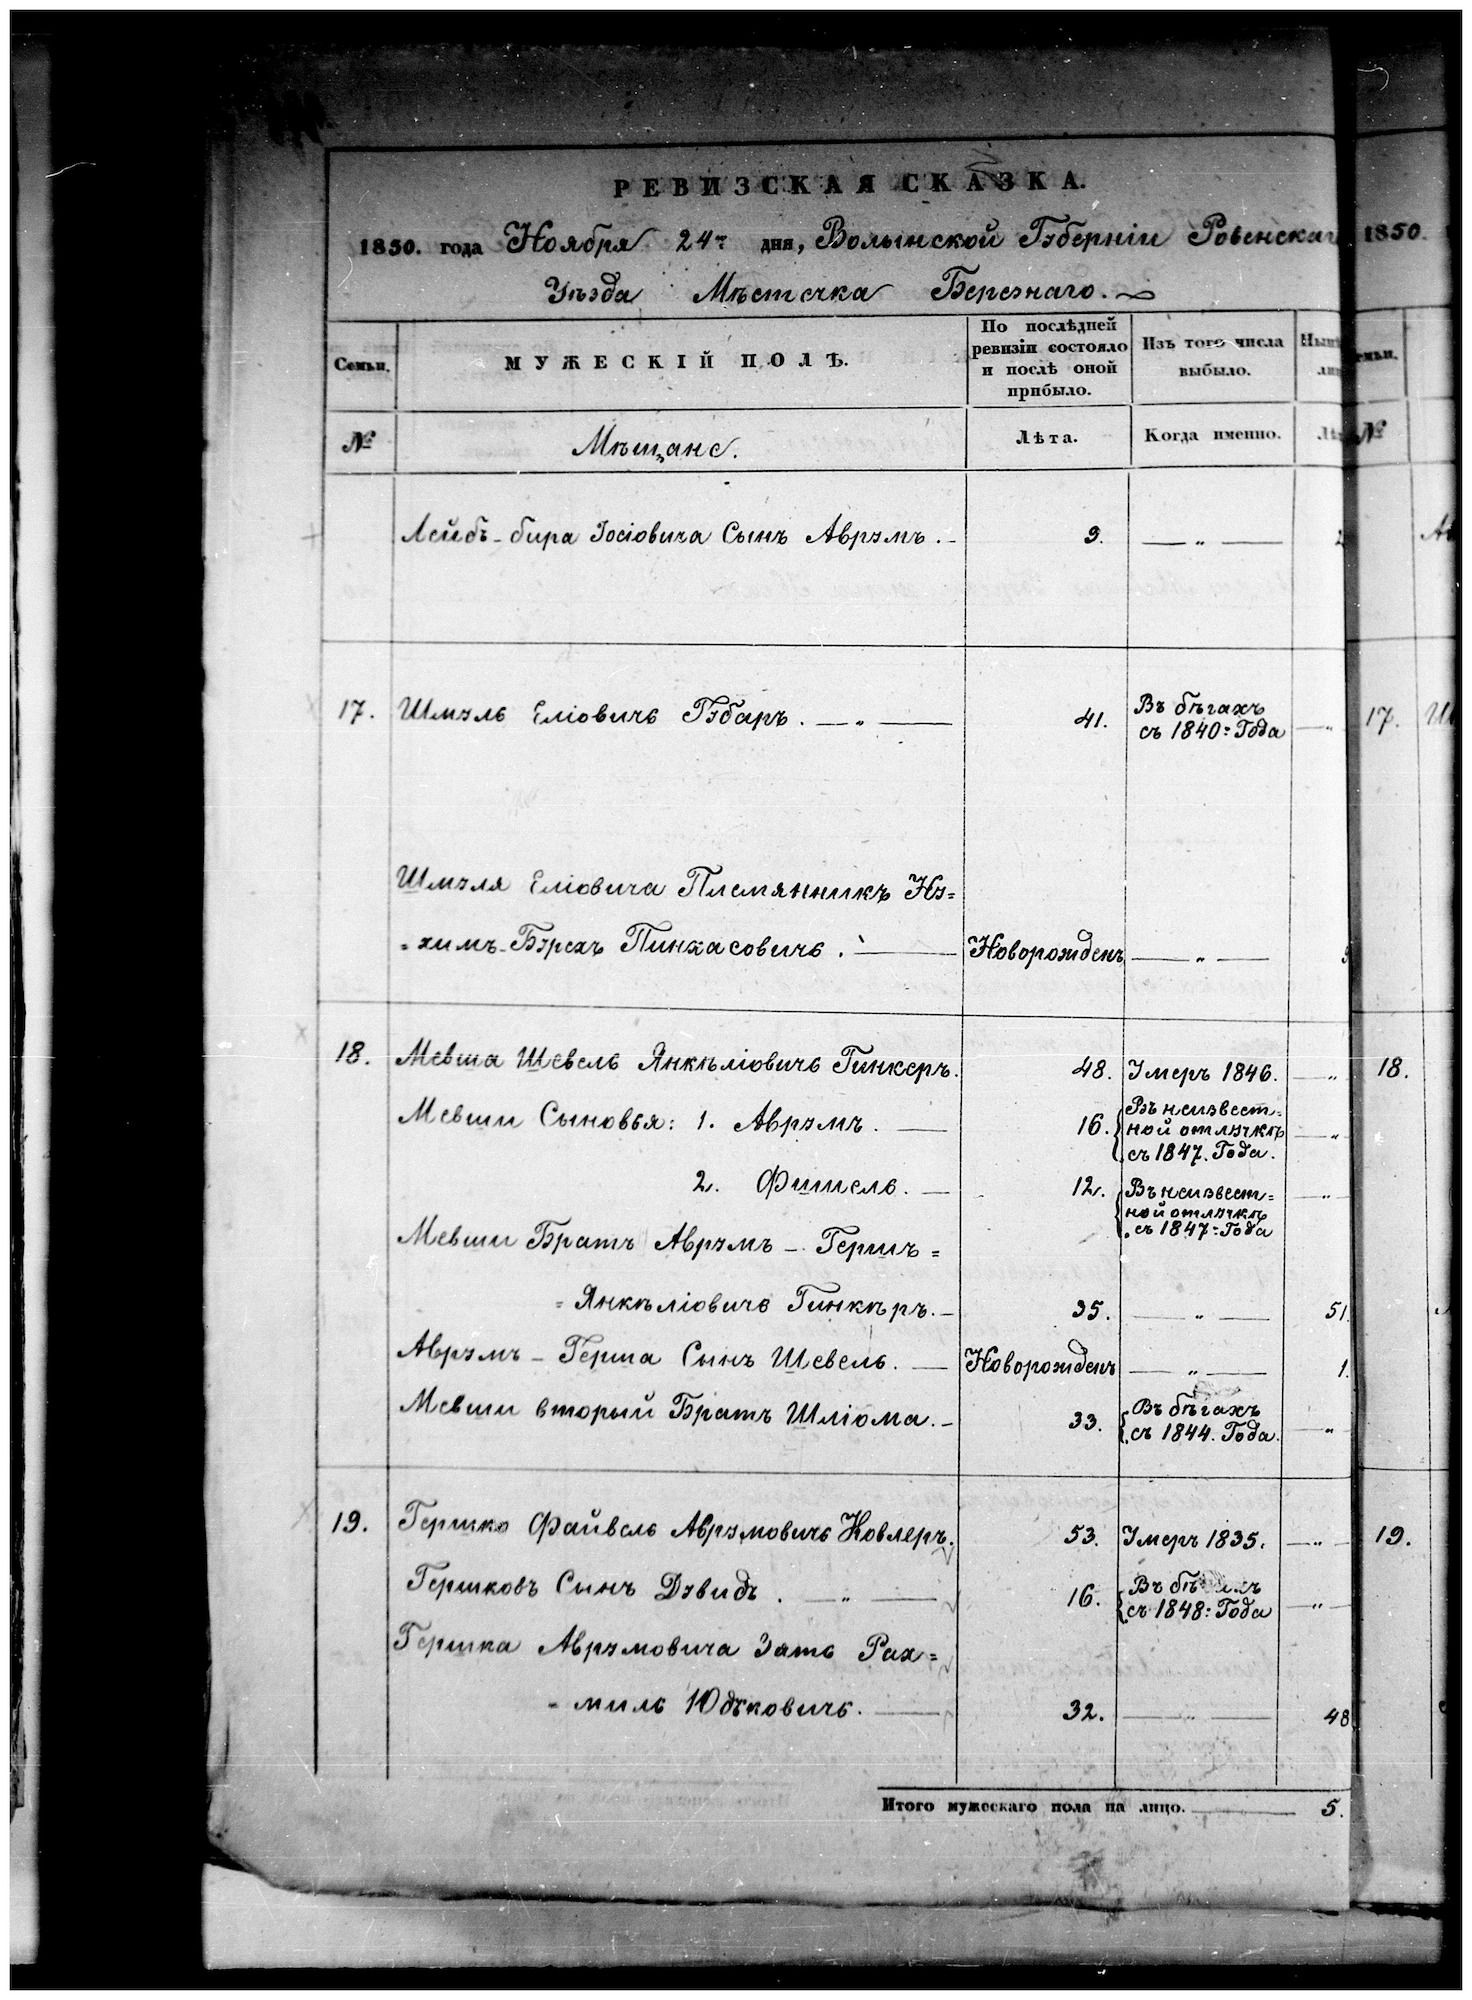 РЕВИЗСКАЯ СКАЗКА.
1850. года Ноября 24го дня, Волынской Губерніи Ровенскаг
Уѣзда Мѣстечка Березнаго.
Семьи.
МУЖЕСКІЙ ПОЛЪ.
По послѣдней ревизіи состояло и послѣ оной прибыло.
Изъ того числа выбыло.
№
Мѣщане.
Лѣта.
Когда именно.
Лейбъ-бира Іосіовича Сынъ Аврумъ. 9. — „ —
17. Шмуль Еліовичь Губаръ. — „ — 41. Въ бѣгахъ
съ 1840: Года — „
Шмуля Еліовича Племянникъ Ну=
=химъ-Бурехъ Пинхасовичь. — Новорожденъ — „ —
18. Мевша Шевель Янкѣліовичь Гинкеръ. 48. Умеръ 1846. — „
Мевши Сыновья: 1. Аврумъ. — 16. Въ неизвест=
ной отлучкѣ — „
съ 1847. Года.
2. Фишель. — 12. Въ неизвест= — „
ной отлучкѣ
съ 1847: Года
Мевши Братъ Аврумъ - Гершъ=
=Янкѣліовичь Гинкѣръ. — 35. — „ — 51.
Аврумъ - Герша Сынъ Шевель. — Новорожденъ — „ — 1.
Мевши вторый Братъ Шліома. — 33. Въ бѣгахъ
съ 1844. Года. — „
19. Гершко Файвель Аврумовичь Ковлеръ. 53. Умеръ 1835. — „ —
Гершковъ Сынъ Дувидъ. — „ — 16.
съ 1848: Года — „ —
Гершка Аврумовича Зять Рах=
=миль Юдковичь. — 32. — „ — 48
Итого мужескаго пола на лицо. — 5.
1850.
№
17.
18.
19.